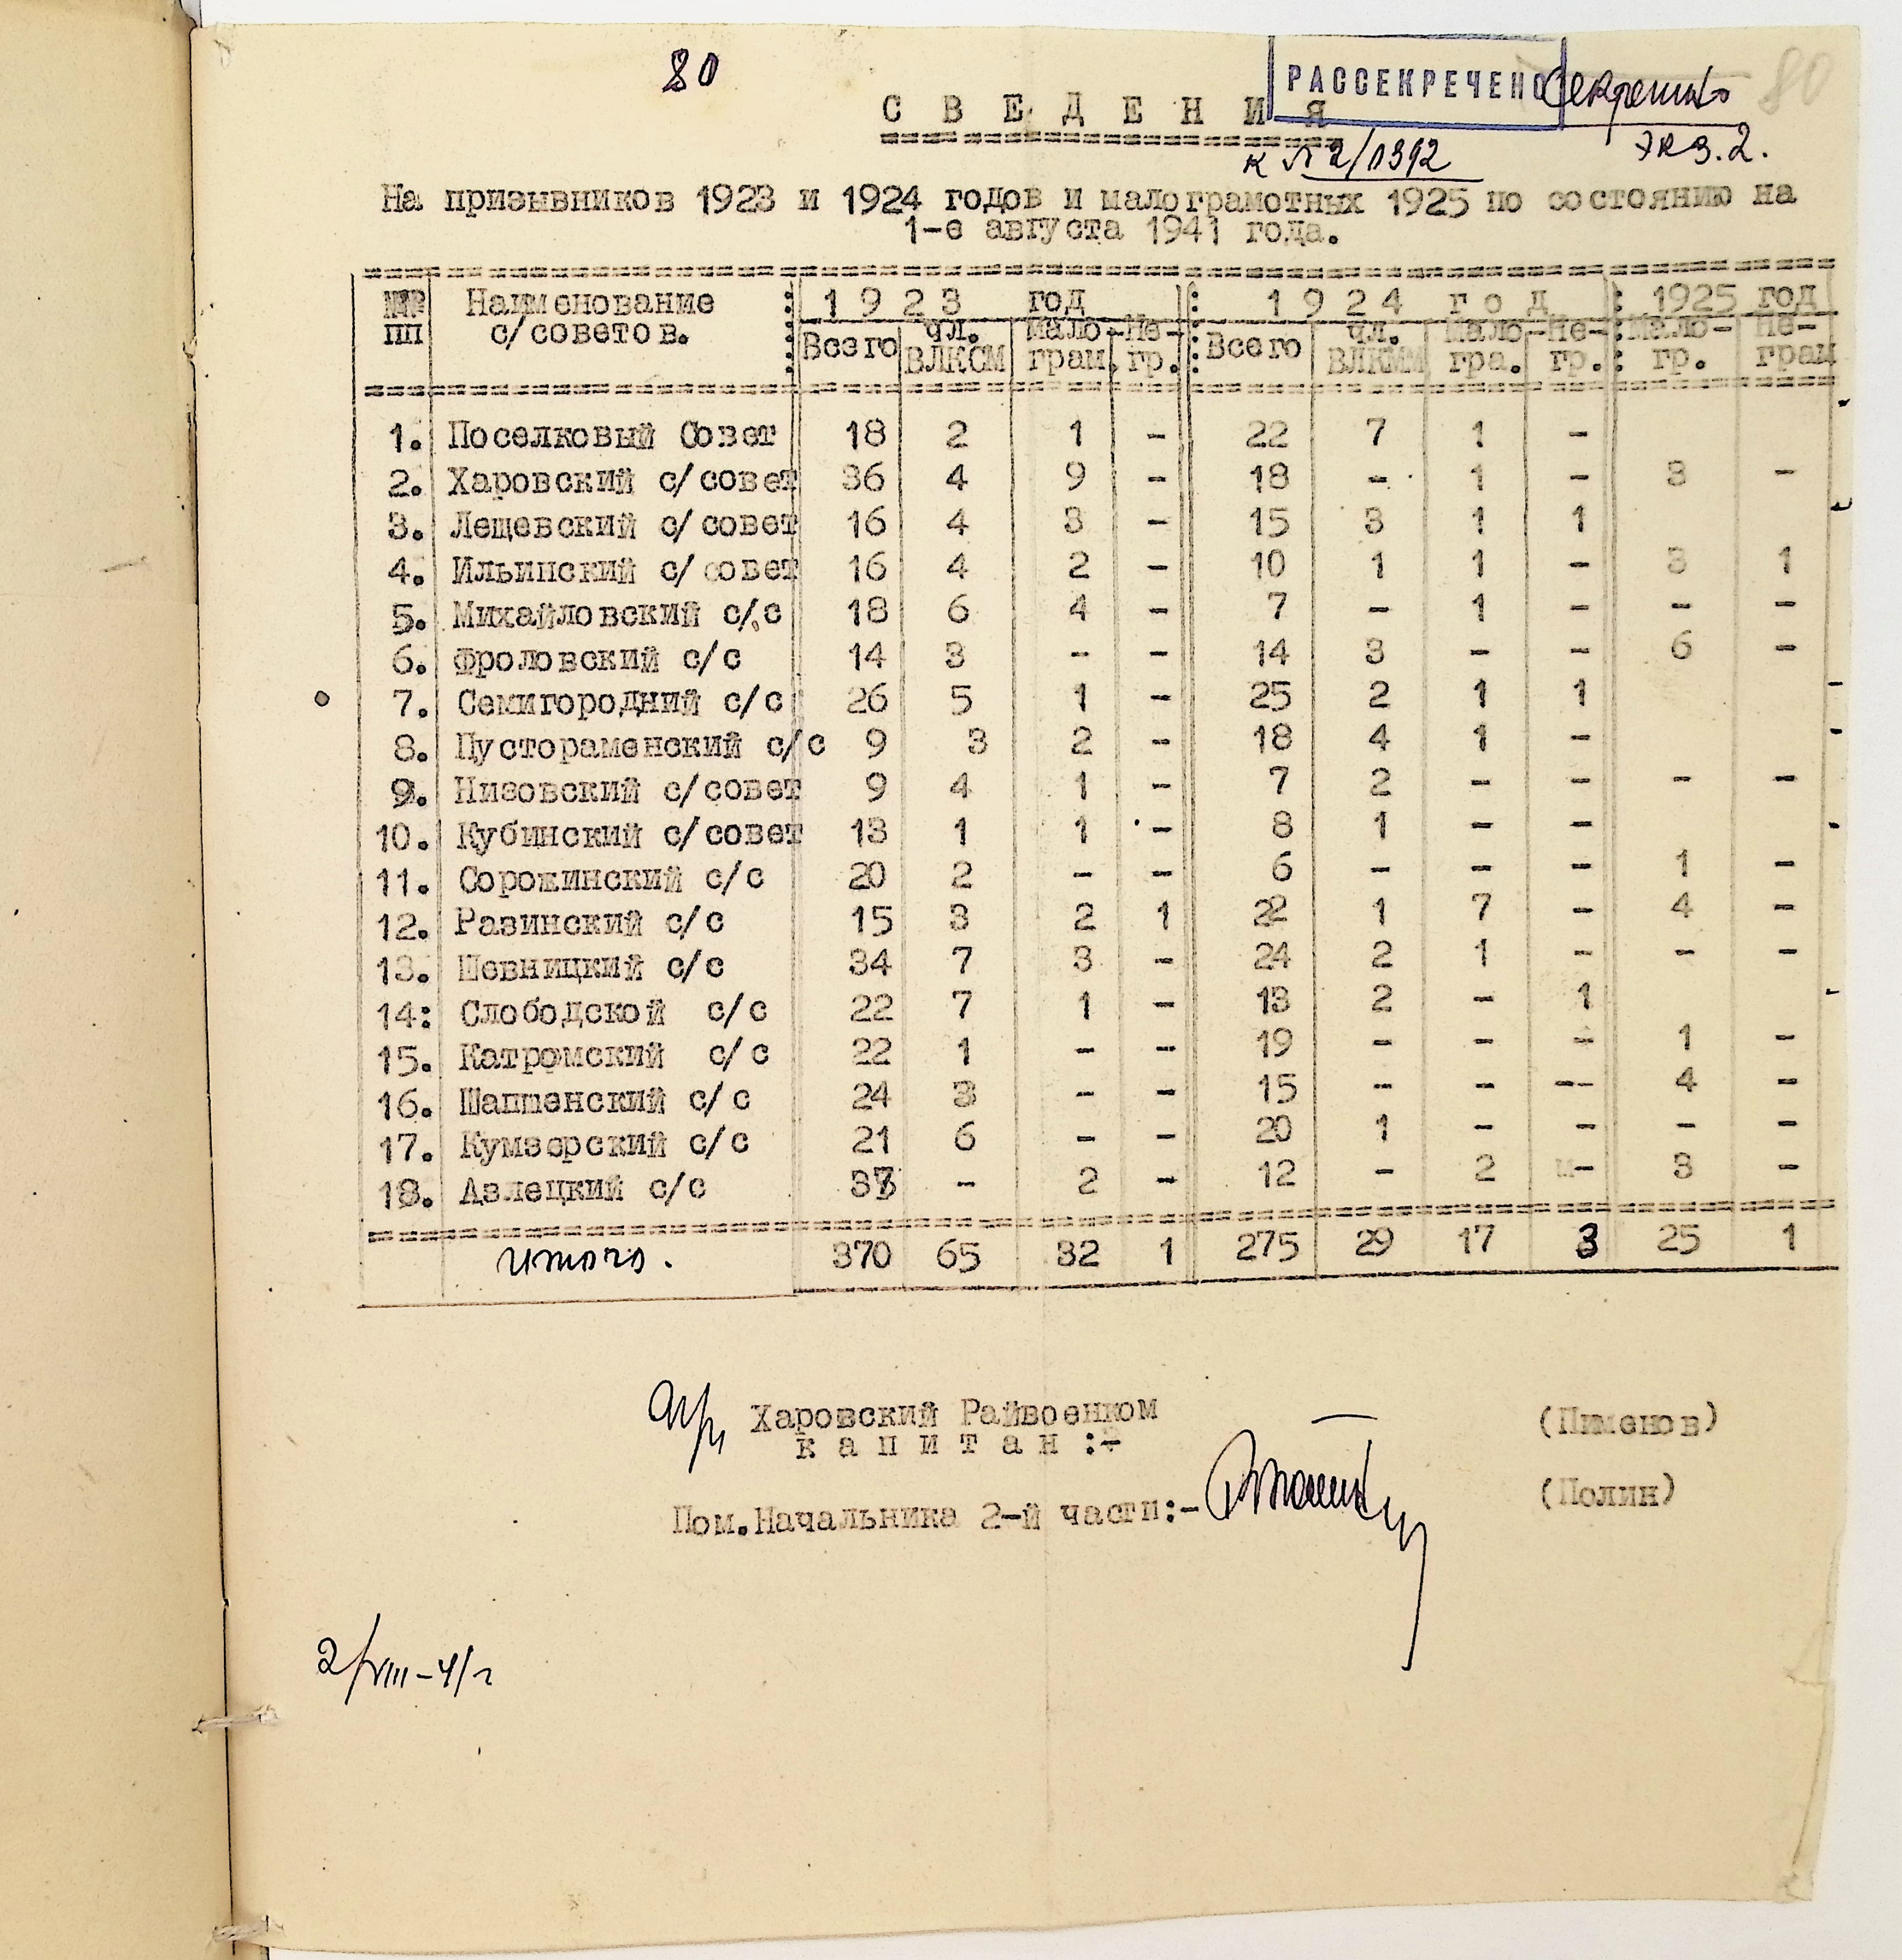 80
РАССЕКРЕЧЕНО Секретно 80
С В Е Д Е Н И Я
к № 2/01392 экз.2.
На призывников 1923 и 1924 годов и малограмотных 1925 по состоянию на
1-е августа 1941 года.
№№ Наименование : 1 9 2 3 год : 1 9 2 4 г о д : 1925 год
пп с/советов. : Всего чл. ВЛКСМ Мало-грам. Не-гр. : Всего чл. ВЛКММ Мало-гра. Не-гр. : Мало-гр. Не-грам
1. Поселковый Совет 18 2 1 - 22 7 1 -
2. Харовский с/совет 36 4 9 - 18 - 1 - 3 -
3. Лещевский с/совет 16 4 3 - 15 3 1 1
4. Ильинский с/совет 16 4 2 - 10 1 1 - 3 1
5. Михайловский с/с 18 6 4 - 7 - 1 - - -
6. Фроловский с/с 14 3 - - 14 3 - - 6 -
7. Семигородний с/с 26 5 1 - 25 2 1 1
8. Пустораменский с/с 9 3 2 - 18 4 1 -
9. Низовский с/совет 9 4 1 - 7 2 - - - -
10. Кубинский с/совет 13 1 1 - 8 1 - -
11. Сорожинский с/с 20 2 - - 6 - - - 1 -
12. Разинский с/с 15 3 2 1 22 1 7 - 4 -
13. Шевницкий с/с 34 7 3 - 24 2 1 - - -
14: Слободской с/с 22 7 1 - 13 2 - 1
15. Катромский с/с 22 1 - - 19 - - - 1 -
16. Шапшенский с/с 24 3 - - 15 - - -- 4 -
17. Кумзерский с/с 21 6 - - 20 1 - - - -
18. Азлецкий с/с 37 - 2 - 12 - 2 - 3 -
итого. 370 65 32 1 275 29 17 3 25 1
Харовский Райвоенком (Пименов)
к а п и т а н :-
Пом.Начальника 2-й части:- (Полин)
2/VIII-41г